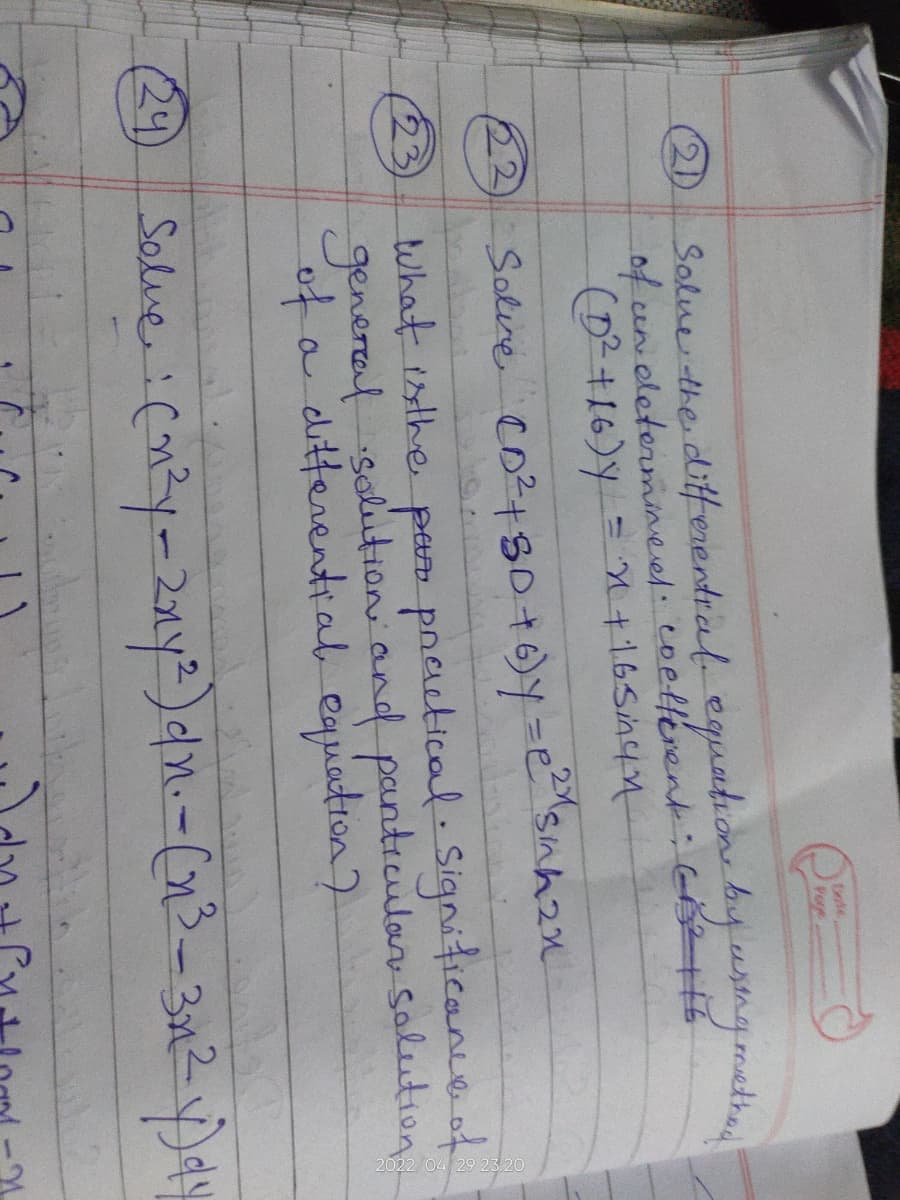 Date
Page
(21) Solve the differential equation by using method
of undetermined coefficient ;
(D²+16)y = x + 16sin4x
(22) Solve (D²+5D+6)y = e²ˣ sinh2x
(23) What is the practical significance of
general solution and particular solution
of a differential equation?
(24) Solve : (x²y - 2xy²)dx - (x³ - 3x²y)dy
2022 04 29 23:20